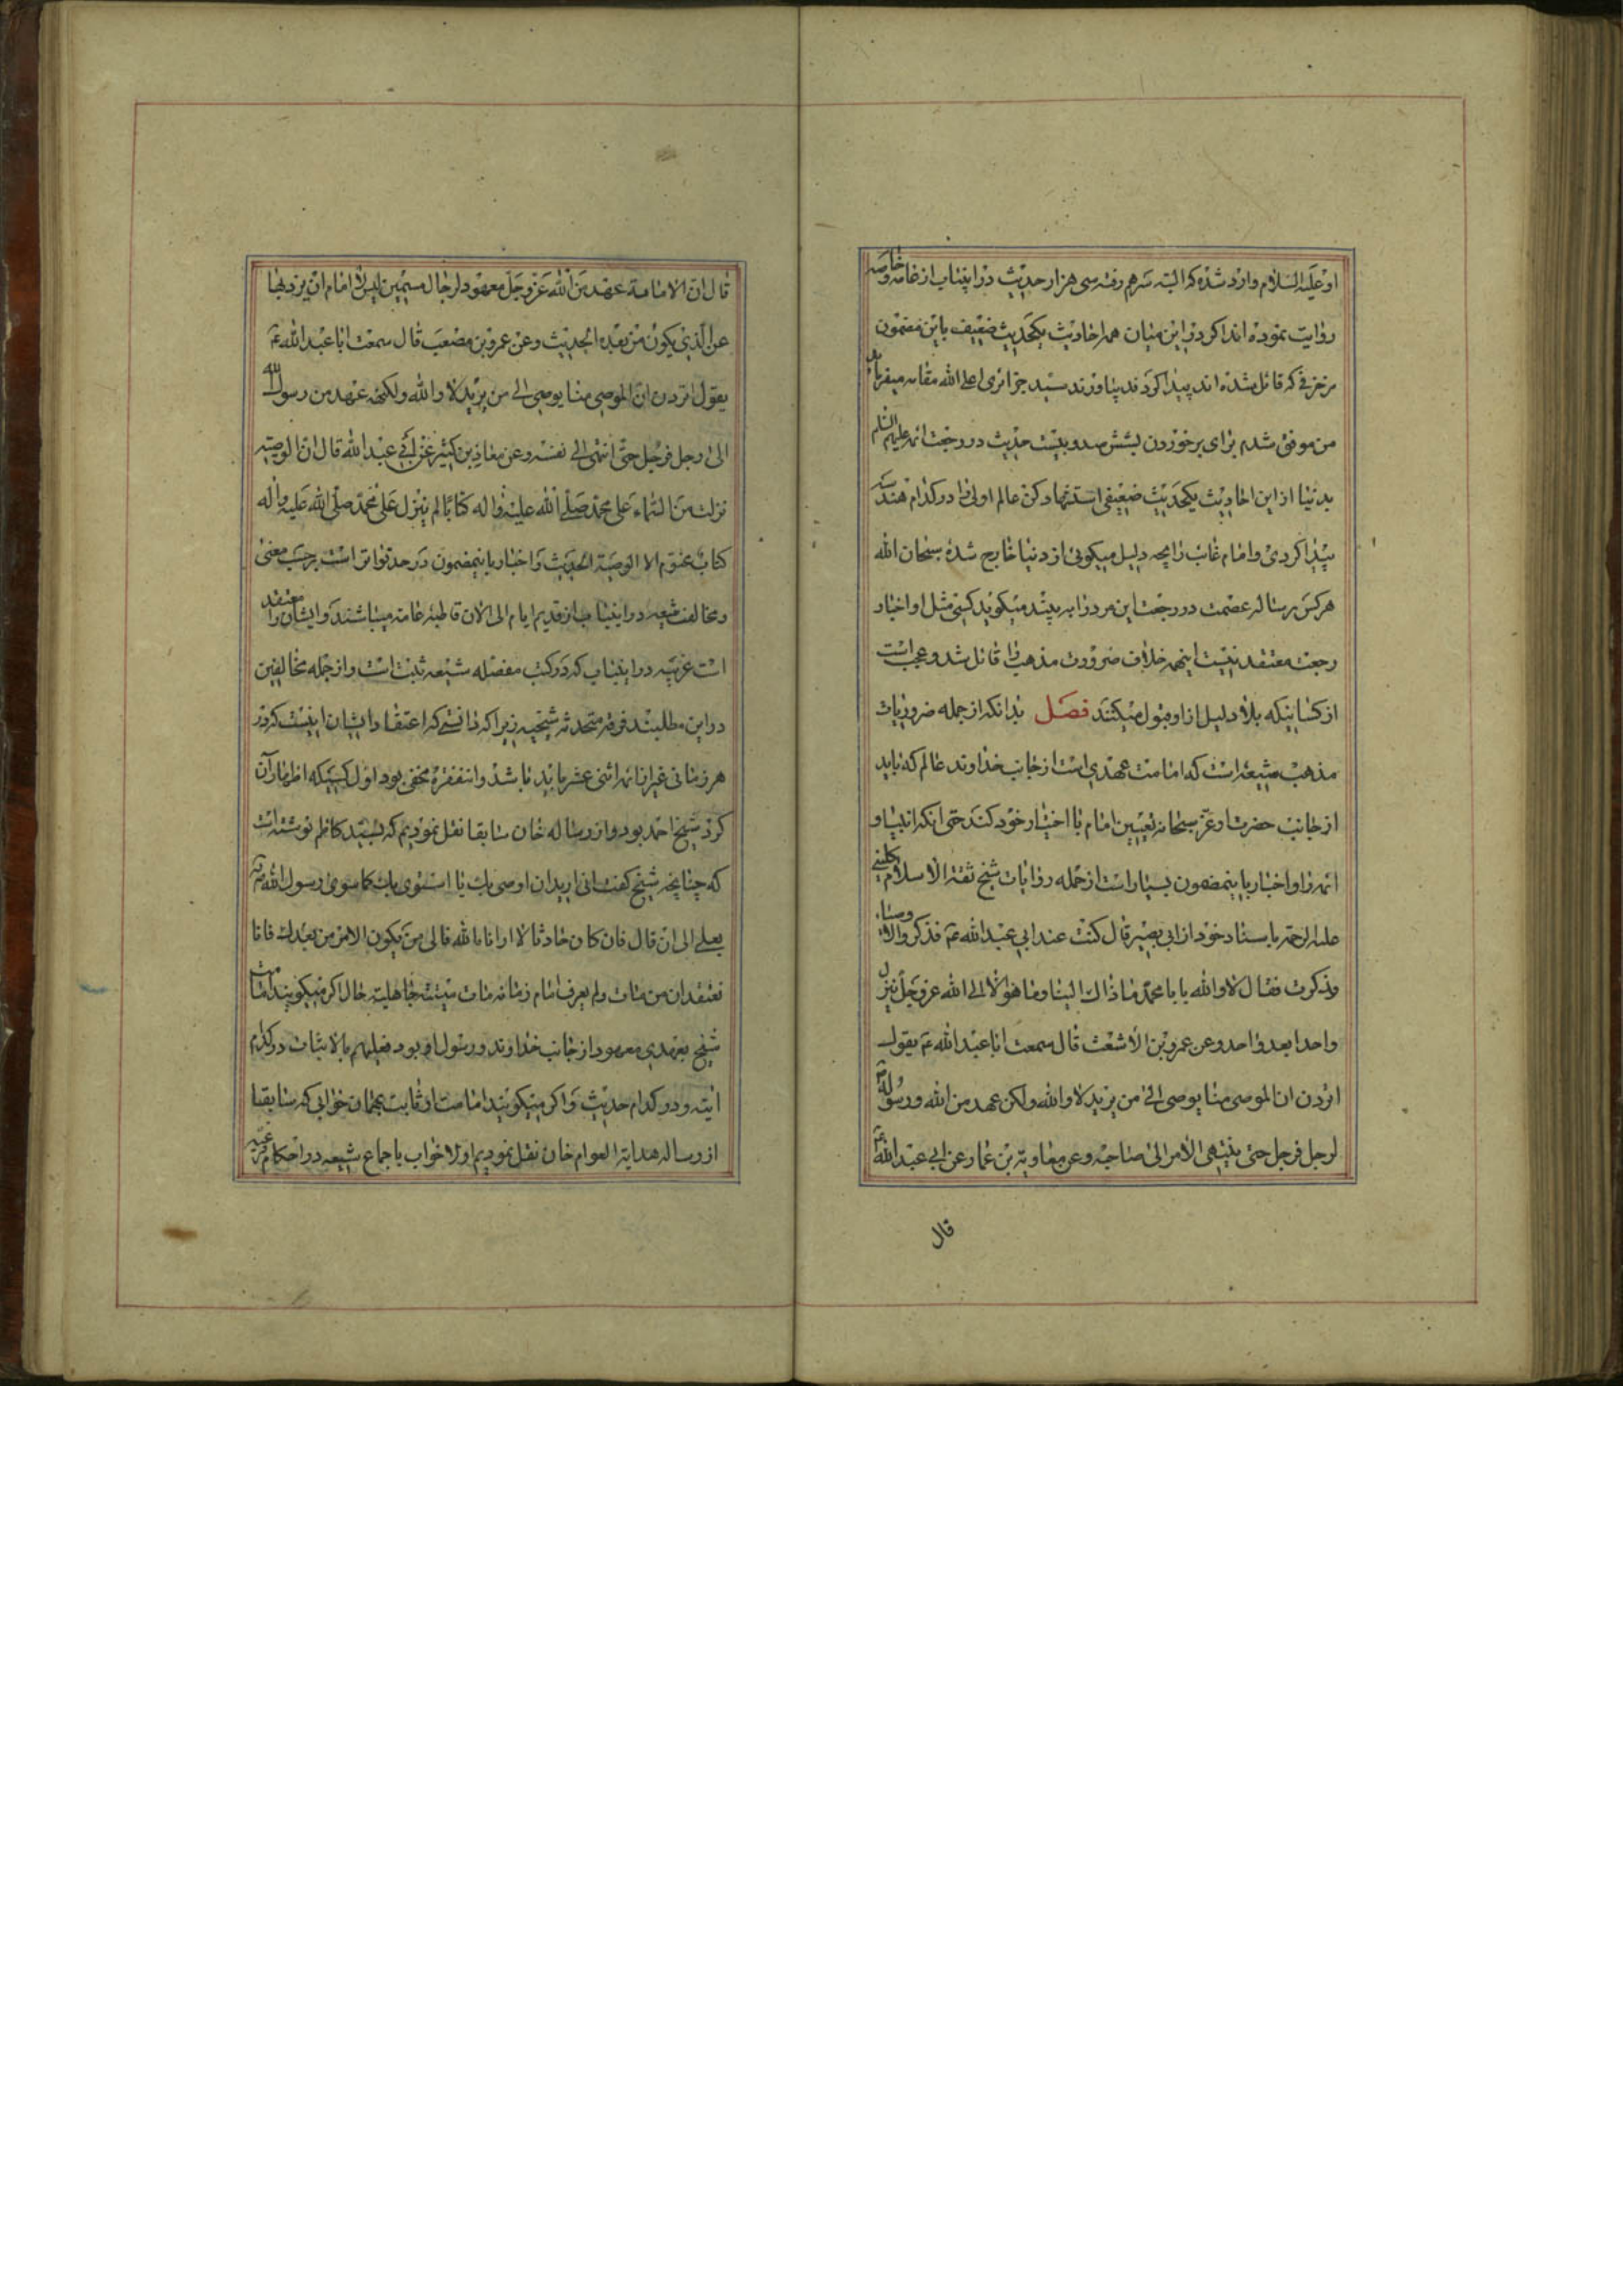 او علیه السلام وارد شده که البته سرهم رفته سی هزار حدیث در اینباب از عامه و خاصه
روایت نموده اند اگر در این میان همه احادیث یکحدیث ضعیف باین مضمون
مزخرفی که قائل شده اند پیدا کردند بیاورند سید جزائری اعلی الله مقامه میفرماید
من موفق شدم برای برخوردن بششصد و بیست حدیث در رجعت ائمه علیهم السلام
بدنیا از این احادیث یکحدیث ضعیفی استشهاد کن عالم اولی را در کدام هند
پیدا کردی و امام غائب را بچه دلیل میگوئی از دنیا خارج شده سبحان الله
هرکس رساله عصمت در رجعت این مرد را به بیند میگوید کسی مثل او اخبار
رجعت معتقد نیست اینهمه خلاف ضرورت مذهب را قائل شد و عجب است
از کسانیکه بلا دلیل از او قبول میکنند فصل بدانکه از جمله ضروریات
مذهب شیعه است که امامت عهدی است از جانب خداوند عالم که باید
از جانب حضرت او عز سبحانه تعیین امام با اختیار خود کند حتی انکه انبیا و
ائمه را و اخبار باینمضمون بسیار است از جمله روایات شیخ ثقة الاسلام کلینی
علیه الرحمه باسناد خود از ابی بصیر قال کنت عند ابی عبدالله ع فذکروا الاوصیاء
وذکرت فقال لا والله یا با محمد ما ذاك الینا وما هو الا الی الله عز وجل ینزل
واحدا بعد واحد وعن عمرو بن الاشعث قال سمعت ابا عبدالله ع یقول
اترون ان الموصی منا یوصی الی من یرید لا والله ولکن عهد من الله ورسوله
لرجل فرجل حتی ینتهی الامر الی صاحبه وعن معاویة بن عمار عن ابی عبدالله ع
قال
قال ان الامامة عهد من الله عز وجل معهود لرجال مسمین لیس للامام ان یزویها
عن الذی یکون من بعده الحدیث وعن عمرو بن مصعب قال سمعت ابا عبدالله ع
یقول اترون ان الموصی منا یوصی الی من یرید لا والله ولکنه عهد من رسول الله
الی رجل فرجل حتی انتهی الی نفسه وعن معاذ بن کثیر عن ابی عبدالله قال ان الوصیة
نزلت من السماء علی محمد صلی الله علیه واله کتابا لم ینزل علی محمد صلی الله علیه واله
کتاب مختوم الا الوصیة الحدیث و اخبار باینمضمون در حد تواتر است برحسب معنی
و مخالفت شیعه در اینباب از قدیم ایام الی الان قاطبه عامه میباشند و ایشان را معتقد
است غریبه در اینباب که در کتب مفصله شیعه ثبت است و از جمله مخالفین
در این مطلبند فرقه متحدثه شیخیه زیرا که دانستی که اعتقاد ایشان اینست که در
هر زمانی غیر از ائمه اثنی عشر باید باشد و اینفقره مخفی بود اول کسیکه اظهار آن
کرد شیخ احمد بود و از رساله خان سابقا نقل نمودیم که بسید کاظم نوشته است
که چنانچه شیخ گفت انی ارید ان اوصی بك یا استوی بك کما سوی رسول الله ص
بعلی الی ان قال فان کان حادثا لا ارانا الله فالی من یکون الامر من بعدك فانا
نعتقد ان من مات ولم یعرف امام زمانه مات میتة جاهلیة حال اگر میگویند امامت
شیخ بعهدی معهود از جانب خداوند و رسول او بود فعلیهم بالاثبات در کدام
ایه و در کدام حدیث و اگر میگویند امامت او ثابت بهمان خوابی که سابقا
از رساله هدایة العوام خان نقل نمودیم اولا خواب باجماع شیعه در احکام فرعیه